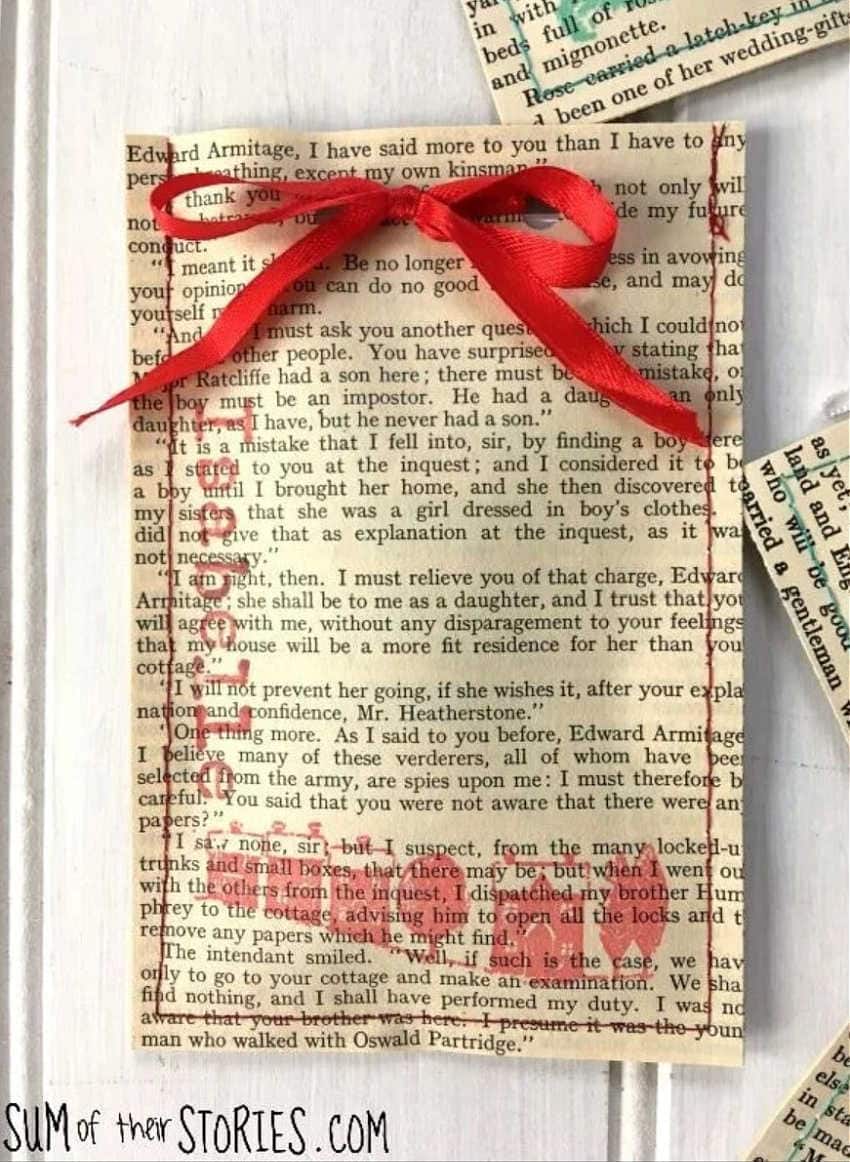 yar
in with
beds full of ro
and mignonette.
Rose carried a latch-key in
been one of her wedding-gifts
Edward Armitage, I have said more to you than I have to any
pers breathing, except my own kinsman."
thank you not only will
not betray bu de my future
conduct.
"I meant it s Be no longer ess in avowing
your opinion ou can do no good se, and may do
yourself harm.
"And I must ask you another quest which I could not
befo other people. You have surprised stating tha
Major Ratcliffe had a son here; there must be mistake, o
the boy must be an impostor. He had a daug an only
daughter, as I have, but he never had a son."
"It is a mistake that I fell into, sir, by finding a boy here
as I stated to you at the inquest; and I considered it to b
a boy until I brought her home, and she then discovered to
my sisters that she was a girl dressed in boy's clothes.
did not give that as explanation at the inquest, as it wa
not necessary."
"I am right, then. I must relieve you of that charge, Edward
Armitage; she shall be to me as a daughter, and I trust that you
will agree with me, without any disparagement to your feelings
that my house will be a more fit residence for her than you
cottage."
"I will not prevent her going, if she wishes it, after your expla
nation and confidence, Mr. Heatherstone."
"One thing more. As I said to you before, Edward Armitage
I believe many of these verderers, all of whom have been
selected from the army, are spies upon me: I must therefore b
careful. You said that you were not aware that there were an
papers?"
"I saw none, sir; but I suspect, from the many locked-u
trunks and small boxes, that there may be; but when I went ou
with the others from the inquest, I dispatched my brother Hum
phrey to the cottage, advising him to open all the locks and t
remove any papers which he might find."
The intendant smiled. "Well, if such is the case, we hav
only to go to your cottage and make an examination. We sha
find nothing, and I shall have performed my duty. I was no
aware that your brother was here. I presume it was the youn
man who walked with Oswald Partridge."
Isabelle
as yet,
land and Eng
who will be good
married a gentleman w
be
else
in sta
be made
"M
SUM of their STORIES.COM